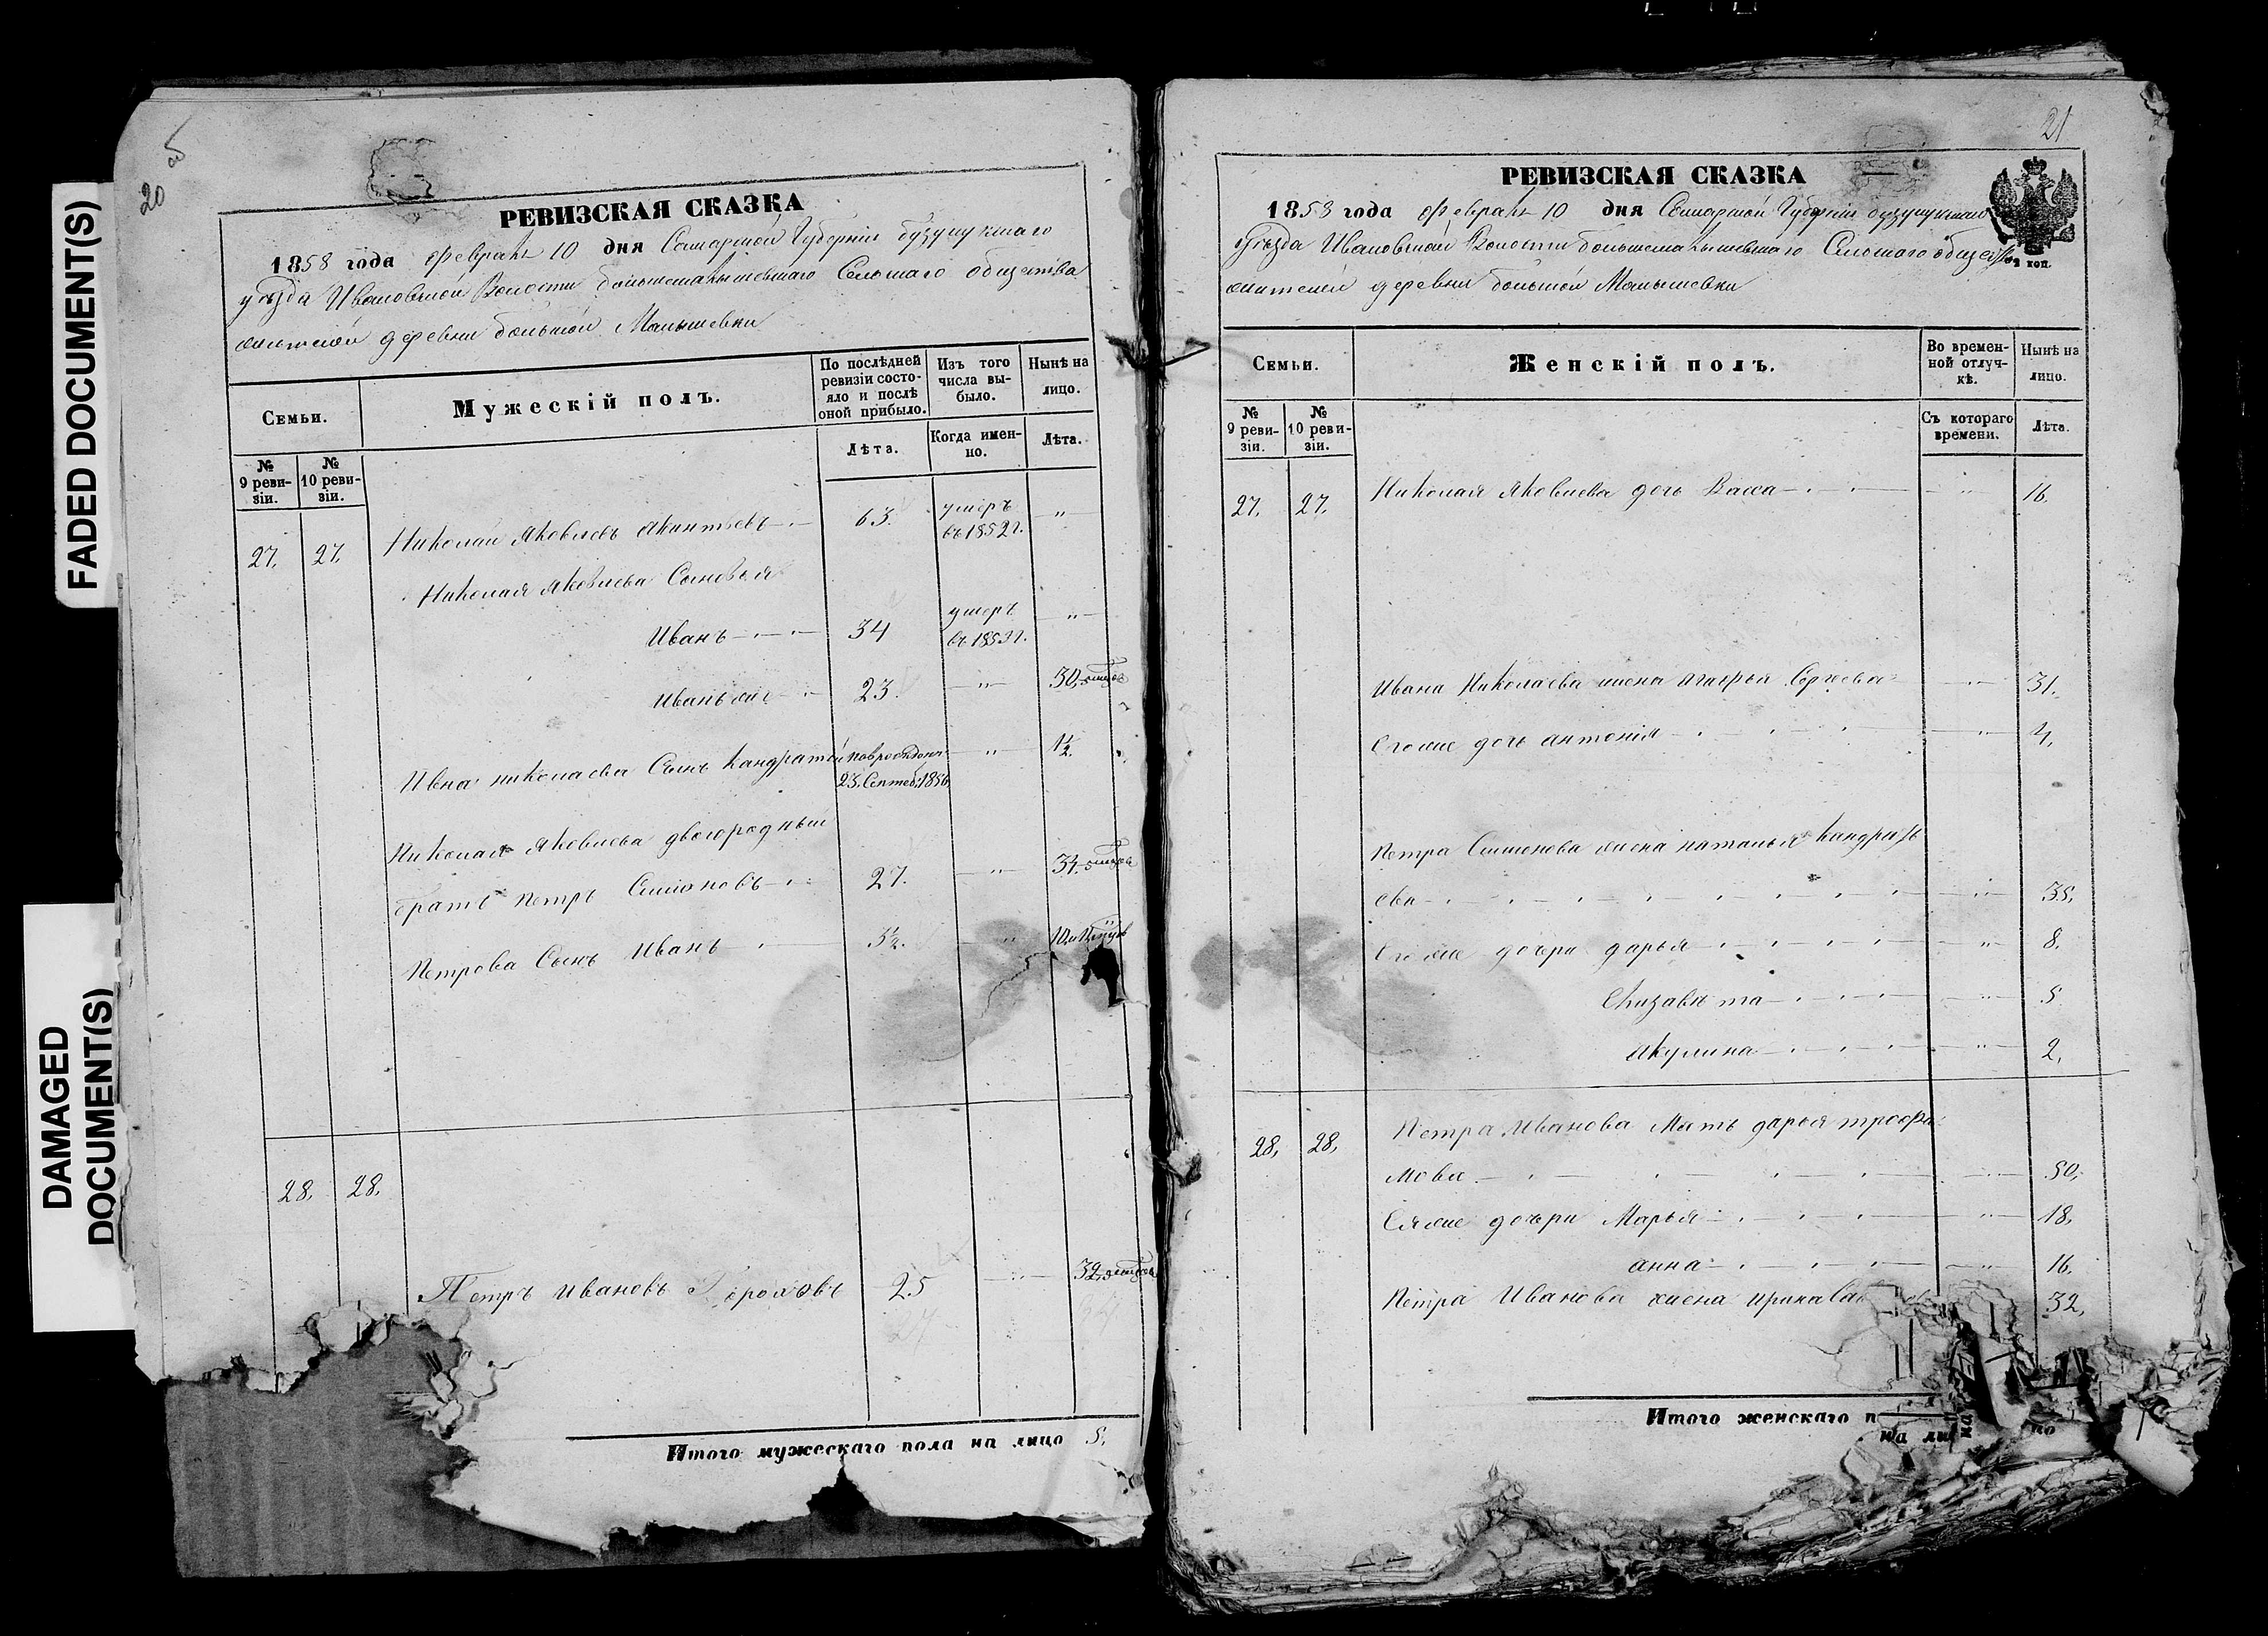 FADED DOCUMENT(S)
DAMAGED
DOCUMENT(S)
20 об
РЕВИЗСКАЯ СКАЗКА
1858 года февраля 10 дня Самарской Губерніи бузулукскаго
уѣзда Ивановской Волости большемалышевскаго Сельскаго общества
жителей деревни большой Малышевки
Семьи.
Мужескій полъ.
По послѣдней ревизіи состояло и послѣ оной прибыло.
Изъ того числа выбыло.
Нынѣ на лицо.
№ 9 ревизіи.
№ 10 ревизіи.
Лѣта.
Когда именно.
Лѣта.
27. 27. Николай Яковлевъ 63. умеръ въ 1852 г. "
Николая Яковлева Сыновья
Иванъ 34 умеръ "
Иванъ же 23. " 30,
Ивна николаева Сынъ кандратей новорожден: " 1½.
23. Сентеб: 1856
Николая Яковлева двоюродный
братъ Петръ Симоновъ 27. " 34.
Петрова Сынъ Иванъ 3½. "
28. 28.
Петръ ивановъ 25 " 32.
Итого мужескаго пола на лицо 5.
21
РЕВИЗСКАЯ СКАЗКА
1858 года февраля 10 дня Самарской Губерніи бузулукскаго
Уѣзда Ивановской Волости большемалышевскаго Сельскаго общества
жителей деревни большой Малышевки
2 коп.
Семьи.
Женскій полъ.
Во временной отлучкѣ.
Нынѣ на лицо.
№ 9 ревизіи.
№ 10 ревизіи.
Съ котораго времени.
Лѣта.
27. 27. Николая Яковлева дочь Васса " 16.
Ивана Николаева жена Сергеева " 31.
Егоже дочь антонія " 4.
Петра Симонова жена наталья кандрать
ева " 35.
Егоже дочери дарья " 8.
Елизавѣта " 5.
Акулина " 2.
28. 28. Петра Иванова Мать дарья трофи
мова " 50.
Еяже дочери Марья " 18.
анна " 16.
Петра Иванова жена ирина 32.
Итого женскаго п
на ли